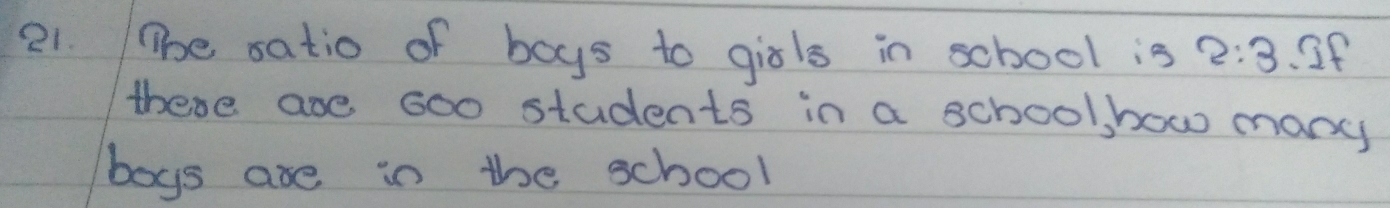 21. The ratio of boys to girls in school is 2:3. If
there are 600 students in a school, how many
boys are in the school